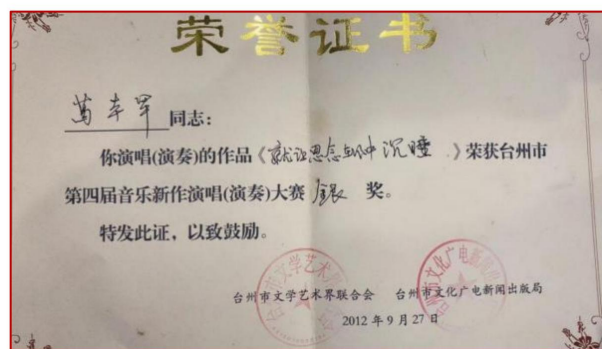 荣誉证书
同志:
你演唱(演奏)的作品《就让思念 沉睡》荣获台州市
第四届音乐新作演唱(演奏)大赛 银 奖。
特发此证,以致鼓励。
台州市文学艺术界联合会 台州市文化广电新闻出版局
2012年9月27日